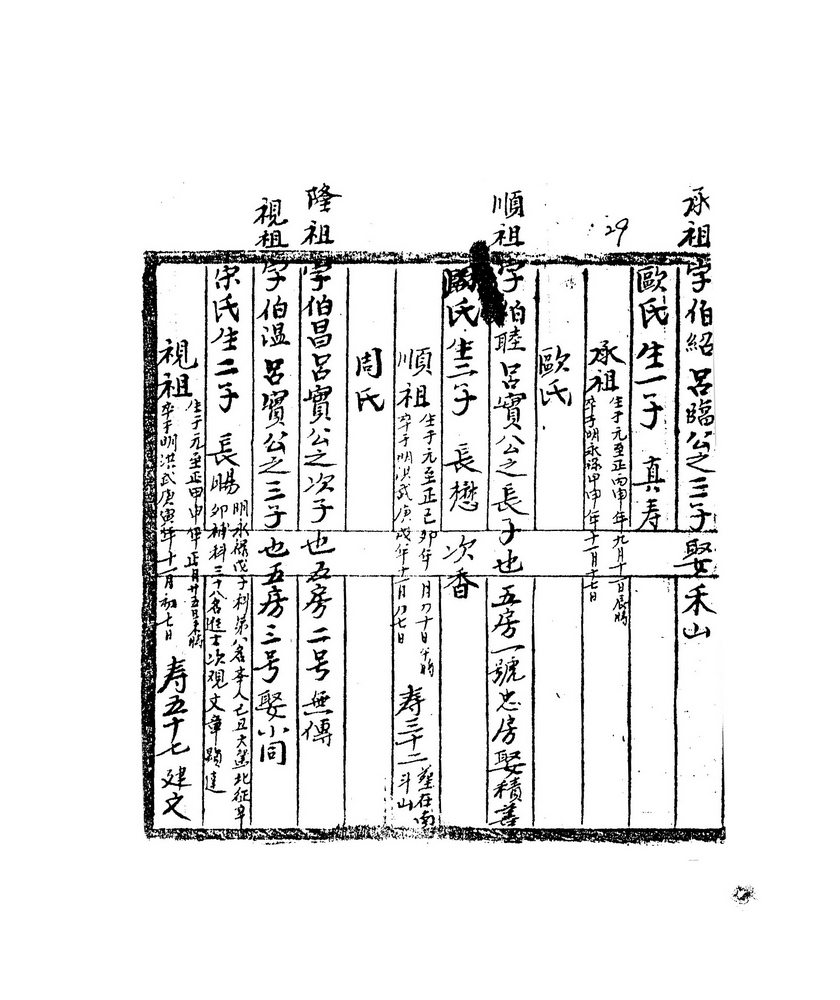 29
承祖字伯紹呂臨公之三子娶禾山
歐氏生一子 真寿
承祖 生于元至正丙申年九月十一日辰時
卒于明永樂甲申年十一月十七日
歐氏
順祖字伯睦呂實公之長子也五房一號忠房娶積善
周氏生二子 長懋 次香
順祖 生于元至正己卯年 月 十日午時
卒于明洪武庚戌年十二月 七日
寿三十二 墓在南
斗山
周氏
隆祖字伯昌呂實公之次子也五房二号無傳
視祖字伯温呂實公之三子也五房三号娶小同
宋氏生二子 長暘 明永樂戊子科第八名舉人己丑大駕北征辛
卯補科三十八名進士次觀文章顕達
視祖 生于元至正甲申年正月廿五日未時
卒于明洪武庚寅年十一月初七日
寿五十七 建文